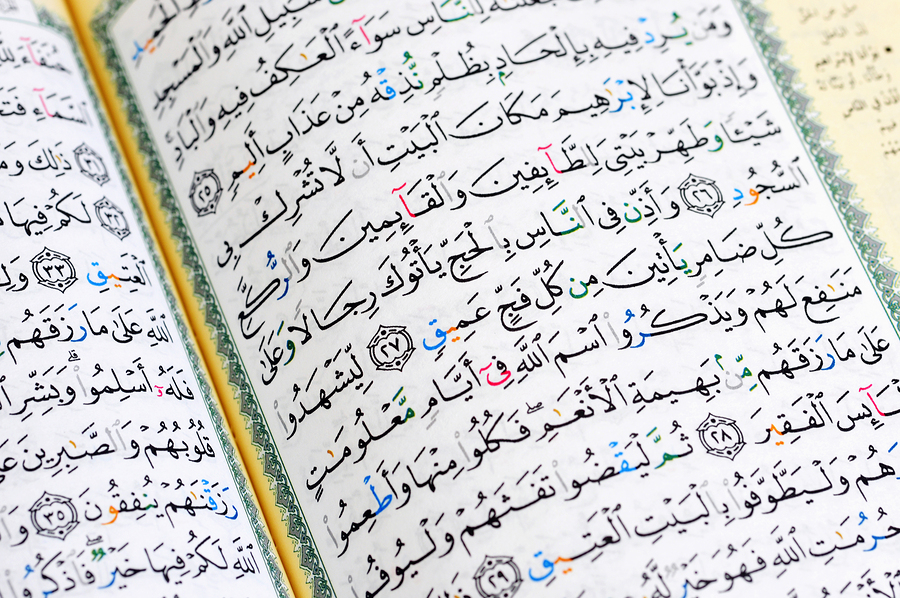 ٱلْحَمِيدِ
سَبِيلِ ٱللَّهِ وَٱلْمَسْجِدِ
لِلنَّاسِ سَوَآءً ٱلْعَٰكِفُ فِيهِ وَٱلْبَادِ
وَمَن يُرِدْ فِيهِ بِإِلْحَادٍۭ بِظُلْمٍ نُّذِقْهُ مِنْ عَذَابٍ أَلِيمٍ ٢٥
وَإِذْ بَوَّأْنَا لِإِبْرَٰهِيمَ مَكَانَ ٱلْبَيْتِ أَن لَّا تُشْرِكْ بِى
شَيْـًٔا وَطَهِّرْ بَيْتِىَ لِلطَّآئِفِينَ وَٱلْقَآئِمِينَ وَٱلرُّكَّعِ
ٱلسُّجُودِ ٢٦ وَأَذِّن فِى ٱلنَّاسِ بِٱلْحَجِّ يَأْتُوكَ رِجَالًا وَعَلَىٰ
كُلِّ ضَامِرٍ يَأْتِينَ مِن كُلِّ فَجٍّ عَمِيقٍ ٢٧ لِّيَشْهَدُوا۟
مَنَٰفِعَ لَهُمْ وَيَذْكُرُوا۟ ٱسْمَ ٱللَّهِ فِىٓ أَيَّامٍ مَّعْلُومَٰتٍ
عَلَىٰ مَا رَزَقَهُم مِّنۢ بَهِيمَةِ ٱلْأَنْعَٰمِ ۖ فَكُلُوا۟ مِنْهَا وَأَطْعِمُوا۟
ٱلْفَقِيرَ ٢٨ ثُمَّ لْيَقْضُوا۟ تَفَثَهُمْ وَلْيُوفُوا۟
وَلْيَطَّوَّفُوا۟ بِٱلْبَيْتِ ٱلْعَتِيقِ ٢٩
حُرُمَٰتِ ٱللَّهِ فَهُوَ خَيْرٌ لَّهُۥ
حُنَفَآءَ لِلَّهِ
ٱلسَّمَآءِ
٣١ ذَٰلِكَ
٣٢ لَكُمْ فِيهَا
ٱلْعَتِيقِ ٣٣
ٱللَّهِ عَلَىٰ مَا رَزَقَهُم
فَلَهُۥٓ أَسْلِمُوا۟ ۗ وَبَشِّرِ
قُلُوبُهُمْ وَٱلصَّٰبِرِينَ
رَزَقْنَٰهُمْ يُنفِقُونَ ٣٥
ٱللَّهِ لَكُمْ فِيهَا خَيْرٌ ۖ فَٱذْكُرُوا۟